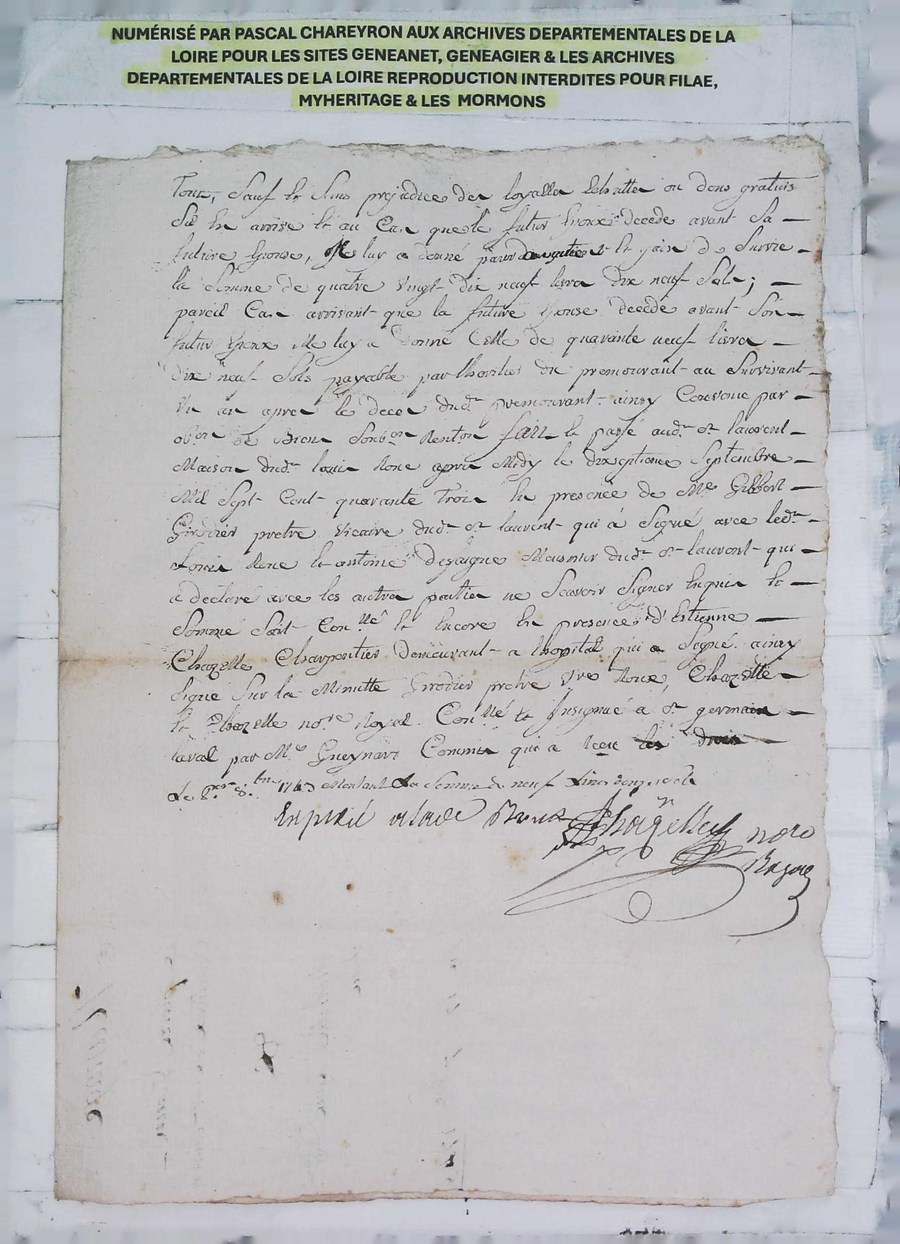 NUMÉRISÉ PAR PASCAL CHAREYRON AUX ARCHIVES DEPARTEMENTALES DE LA
LOIRE POUR LES SITES GENEANET, GENEAGIER & LES ARCHIVES
DEPARTEMENTALES DE LA LOIRE REPRODUCTION INTERDITES POUR FILAE,
MYHERITAGE & LES MORMONS
Tour, Sauf et Sans prejudice des loyalles ou dons gratuits
Sil En arrive et au Cas que le futur Epoux decede avant Sa
future Epouse, luy a donné pour et gain de Survie
la Somme de quatre vingt dix neuf livres dix neuf Sols;
pareil Cas arrivant que la future Epouse decede avant Son
futur Epoux Elle luy a donné Celle de quarante neuf livres
dix neuf Sols payable par lheritier du premourant au Survivant
Un an apres le deces dud. premourant ainsy Convenu par
oblon de Biens Renon fait et passé aud. st laurent
Maison dud. louis Roux apres Midy le dixseptieme Septembre
Mil Sept Cent quarante Trois En presence de Mre Gilbert
Girodier pretre vicaire dud. st laurent qui à Signé avec led.
Louis Roux et antoine dud. st laurent qui
a déclaré avec les autres parties ne Scavoir Signer Enquis et
Sommé Soit Conllé et Encore En presence d'Estienne
Chazelle Charpentier Demeurant a lhopital qui a Signé ainsy
Signé Sur la Minutte Girodier pretre vre Roux, Chazelle
et Chazelle nore Royal Conllé et Insignué a st germain
laval par Me Gueynard Commis qui a recu les droits
Le 8bre 1743 Montant La Somme de neuf Livres
Chazelles nore
Royal